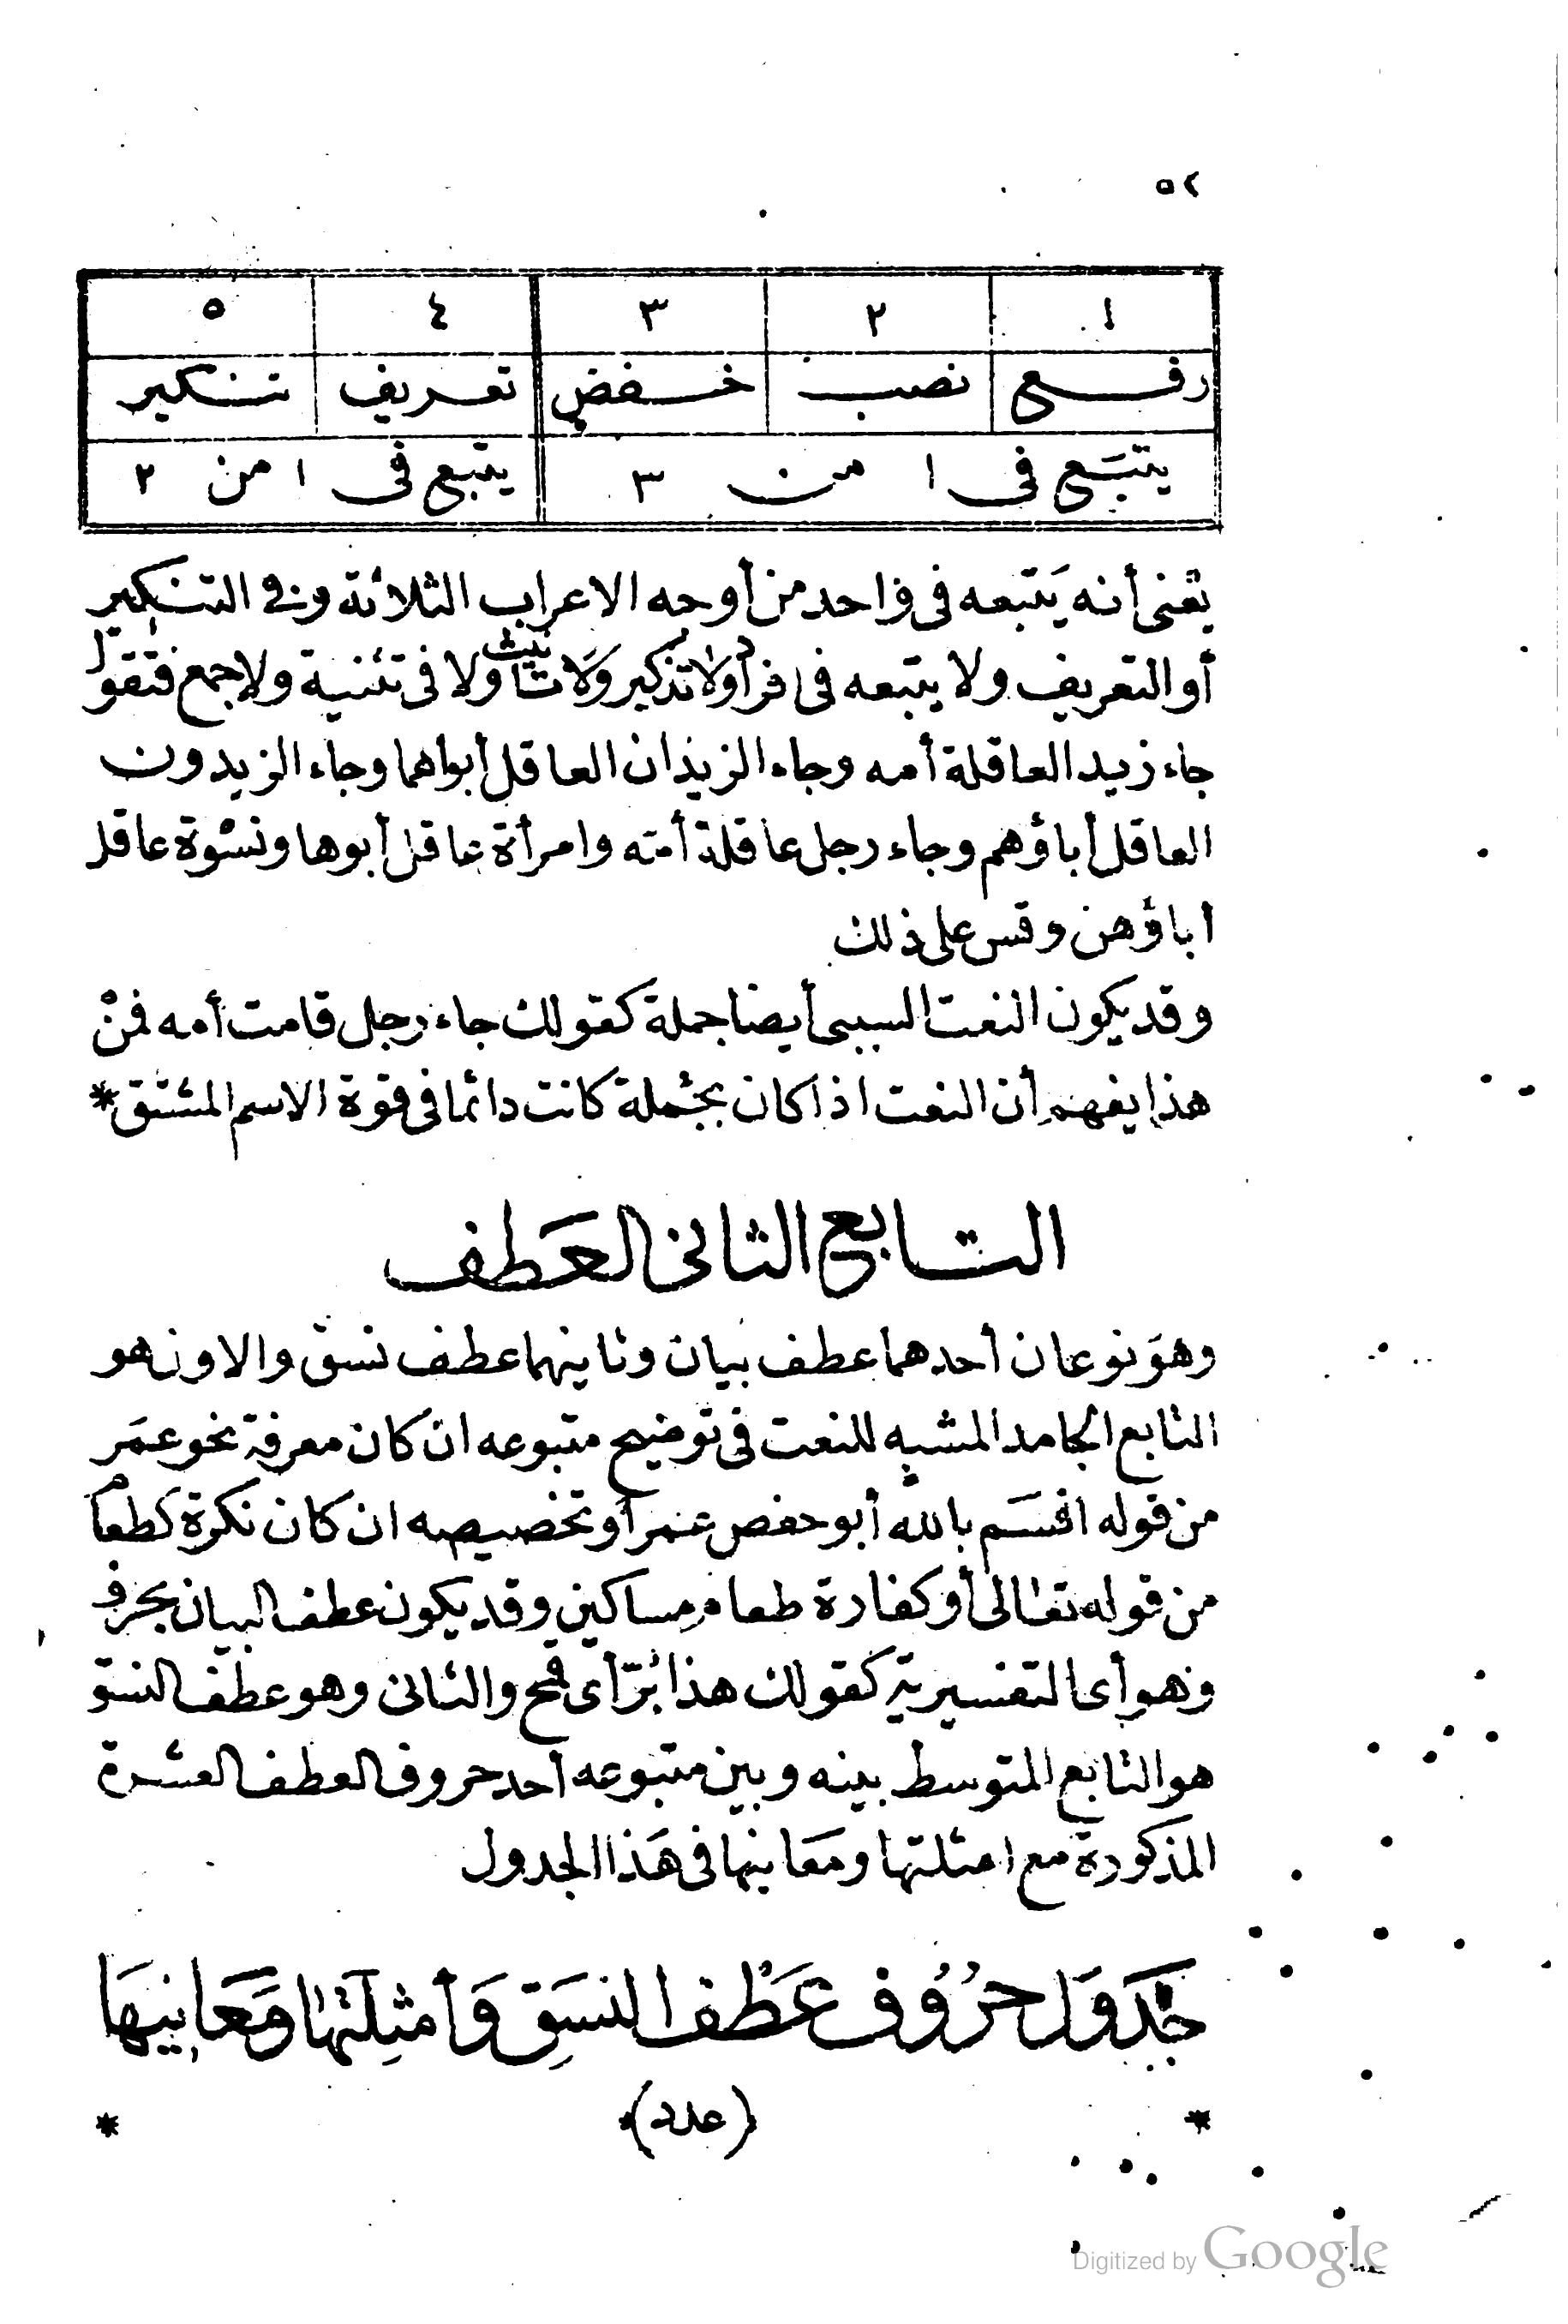 ٥٢
١ ٢ ٣ ٤ ٥
رفع نصب خفض تعريف تنكير
يتبع في ١ من ٣ يتبع في ١ من ٢
يعنى أنه يَتبعه فى واحد من أوجه الاعراب الثلاثة وفى التنكير
أو التعريف ولا يتبعه فى افراد ولا تذكير وَلا تأنيث ولا فى تثنية ولا جمع فتقول
جاء زيد العاقلة أمه وجاء الزيدان العاقل أبواهما وجاء الزيدون
العاقل أباؤهم وجاء رجل عاقلة أمه وامرأة عاقل أبوها ونسْوة عاقل
أباؤهن وقس على ذلك
وقد يكون النعت السببى أيضا جملة كقولك جاء رجل قامت أمه فمنْ
هذا يفهم أن النعت اذا كان بجملة كانت دائما فى قوة الاسم المشتق *
التابع الثانى العَطف
وهوَ نوعان أحدهما عطف بيان وثانيهما عطف نسق والاول هو
التابع الجامد المشبه للنعت فى توضيح متبوعه ان كان معرفة نحو عمَر
من قوله اقسَم بالله أبو حفص عمر أو تخصيصه ان كان نكرة كطعام
من قوله تعالى أو كفارة طعام مساكين وقد يكون عطف البيان بحرف
وهو أى التفسيرية كقولك هذا بُرّ أى قمح والثانى وهو عطف النسق
هو التابع المتوسط بينه وبين متبوعه أحد حروف العطف العشرة
المذكورة مع امثلتها ومَعانيها فى هَذا الجدول
جَدوَل حرُوُف عَطْف النسَقِ وَأمثِلَتهَا ومَعَانِيهَا
* (عدد) *
Digitized by Google